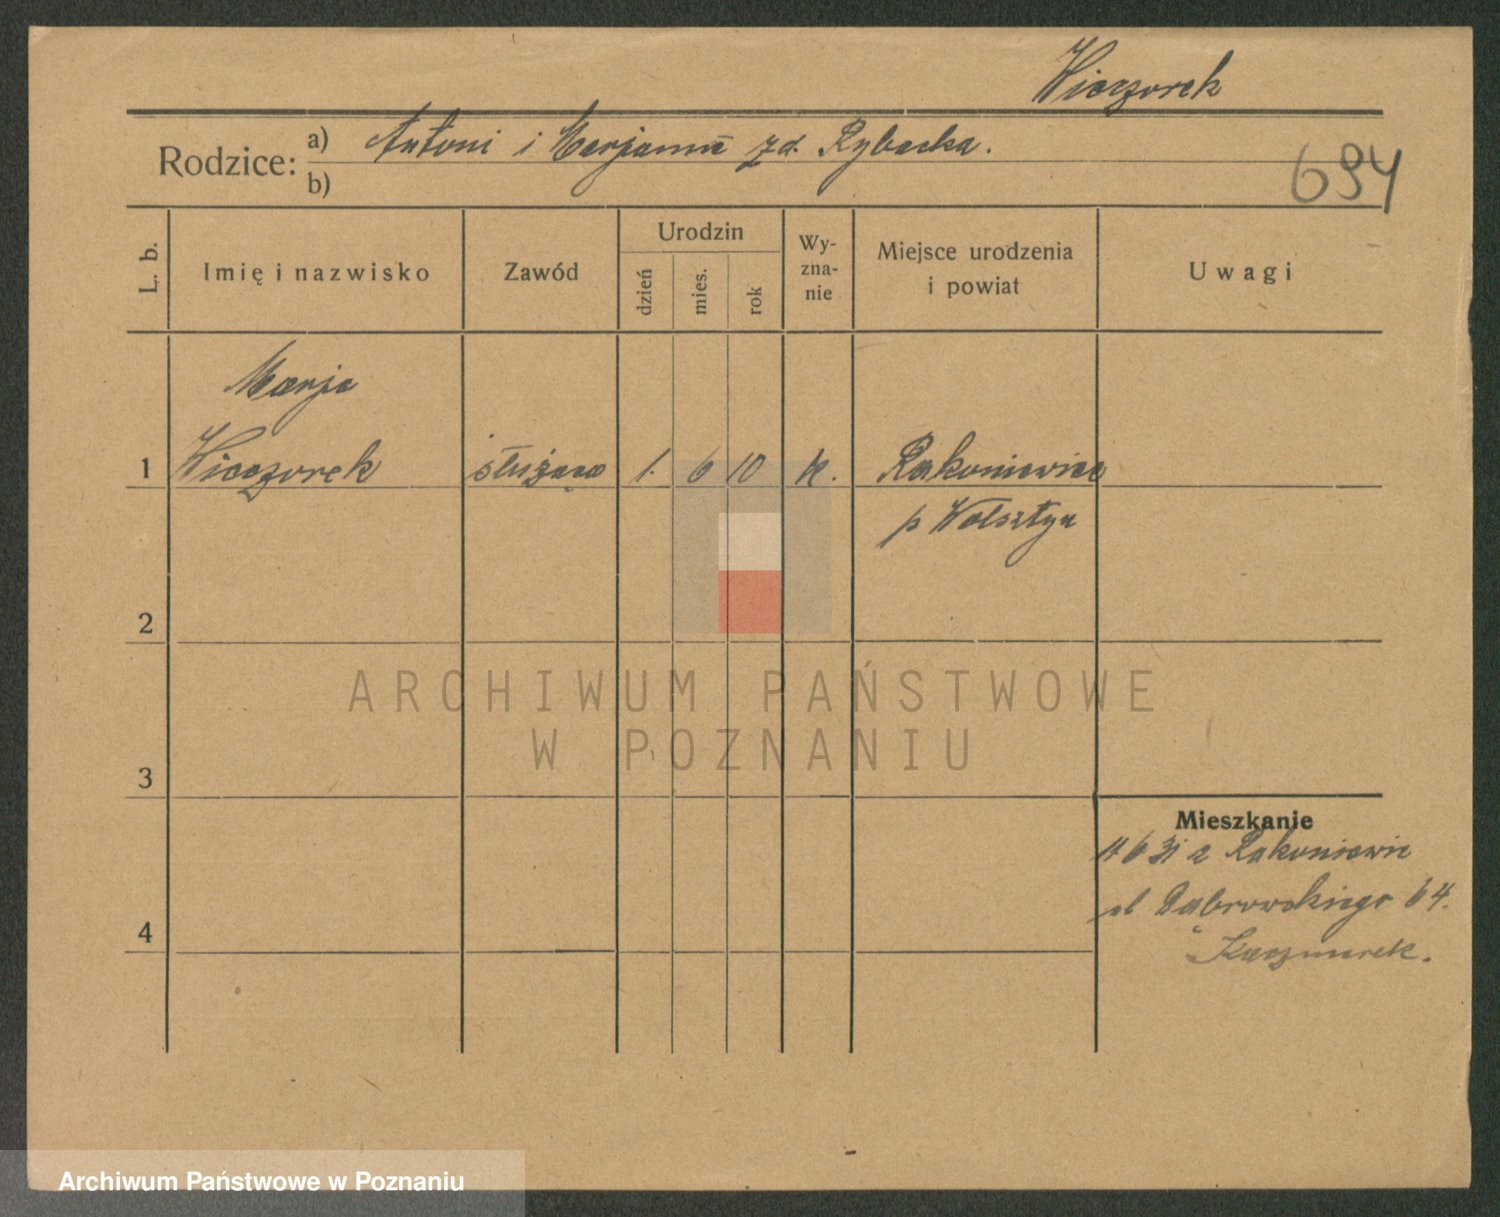 Wieczorek
Rodzice:
a) Antoni i Marjanna zd. Rybacka.
b)
694
L. b.
Imię i nazwisko
Zawód
Urodzin
dzień
mies.
rok
Wy-
zna-
nie
Miejsce urodzenia
i powiat
Uwagi
Marja
1 Wieczorek służąca 1. 6 10 k. Rakoniewice
p Wolsztyn
2
3
4
Mieszkanie
6 31 z Rakoniewic
ul Dąbrowskiego 64.
Kaczmarek.
ARCHIWUM PAŃSTWOWE
W POZNANIU
Archiwum Państwowe w Poznaniu